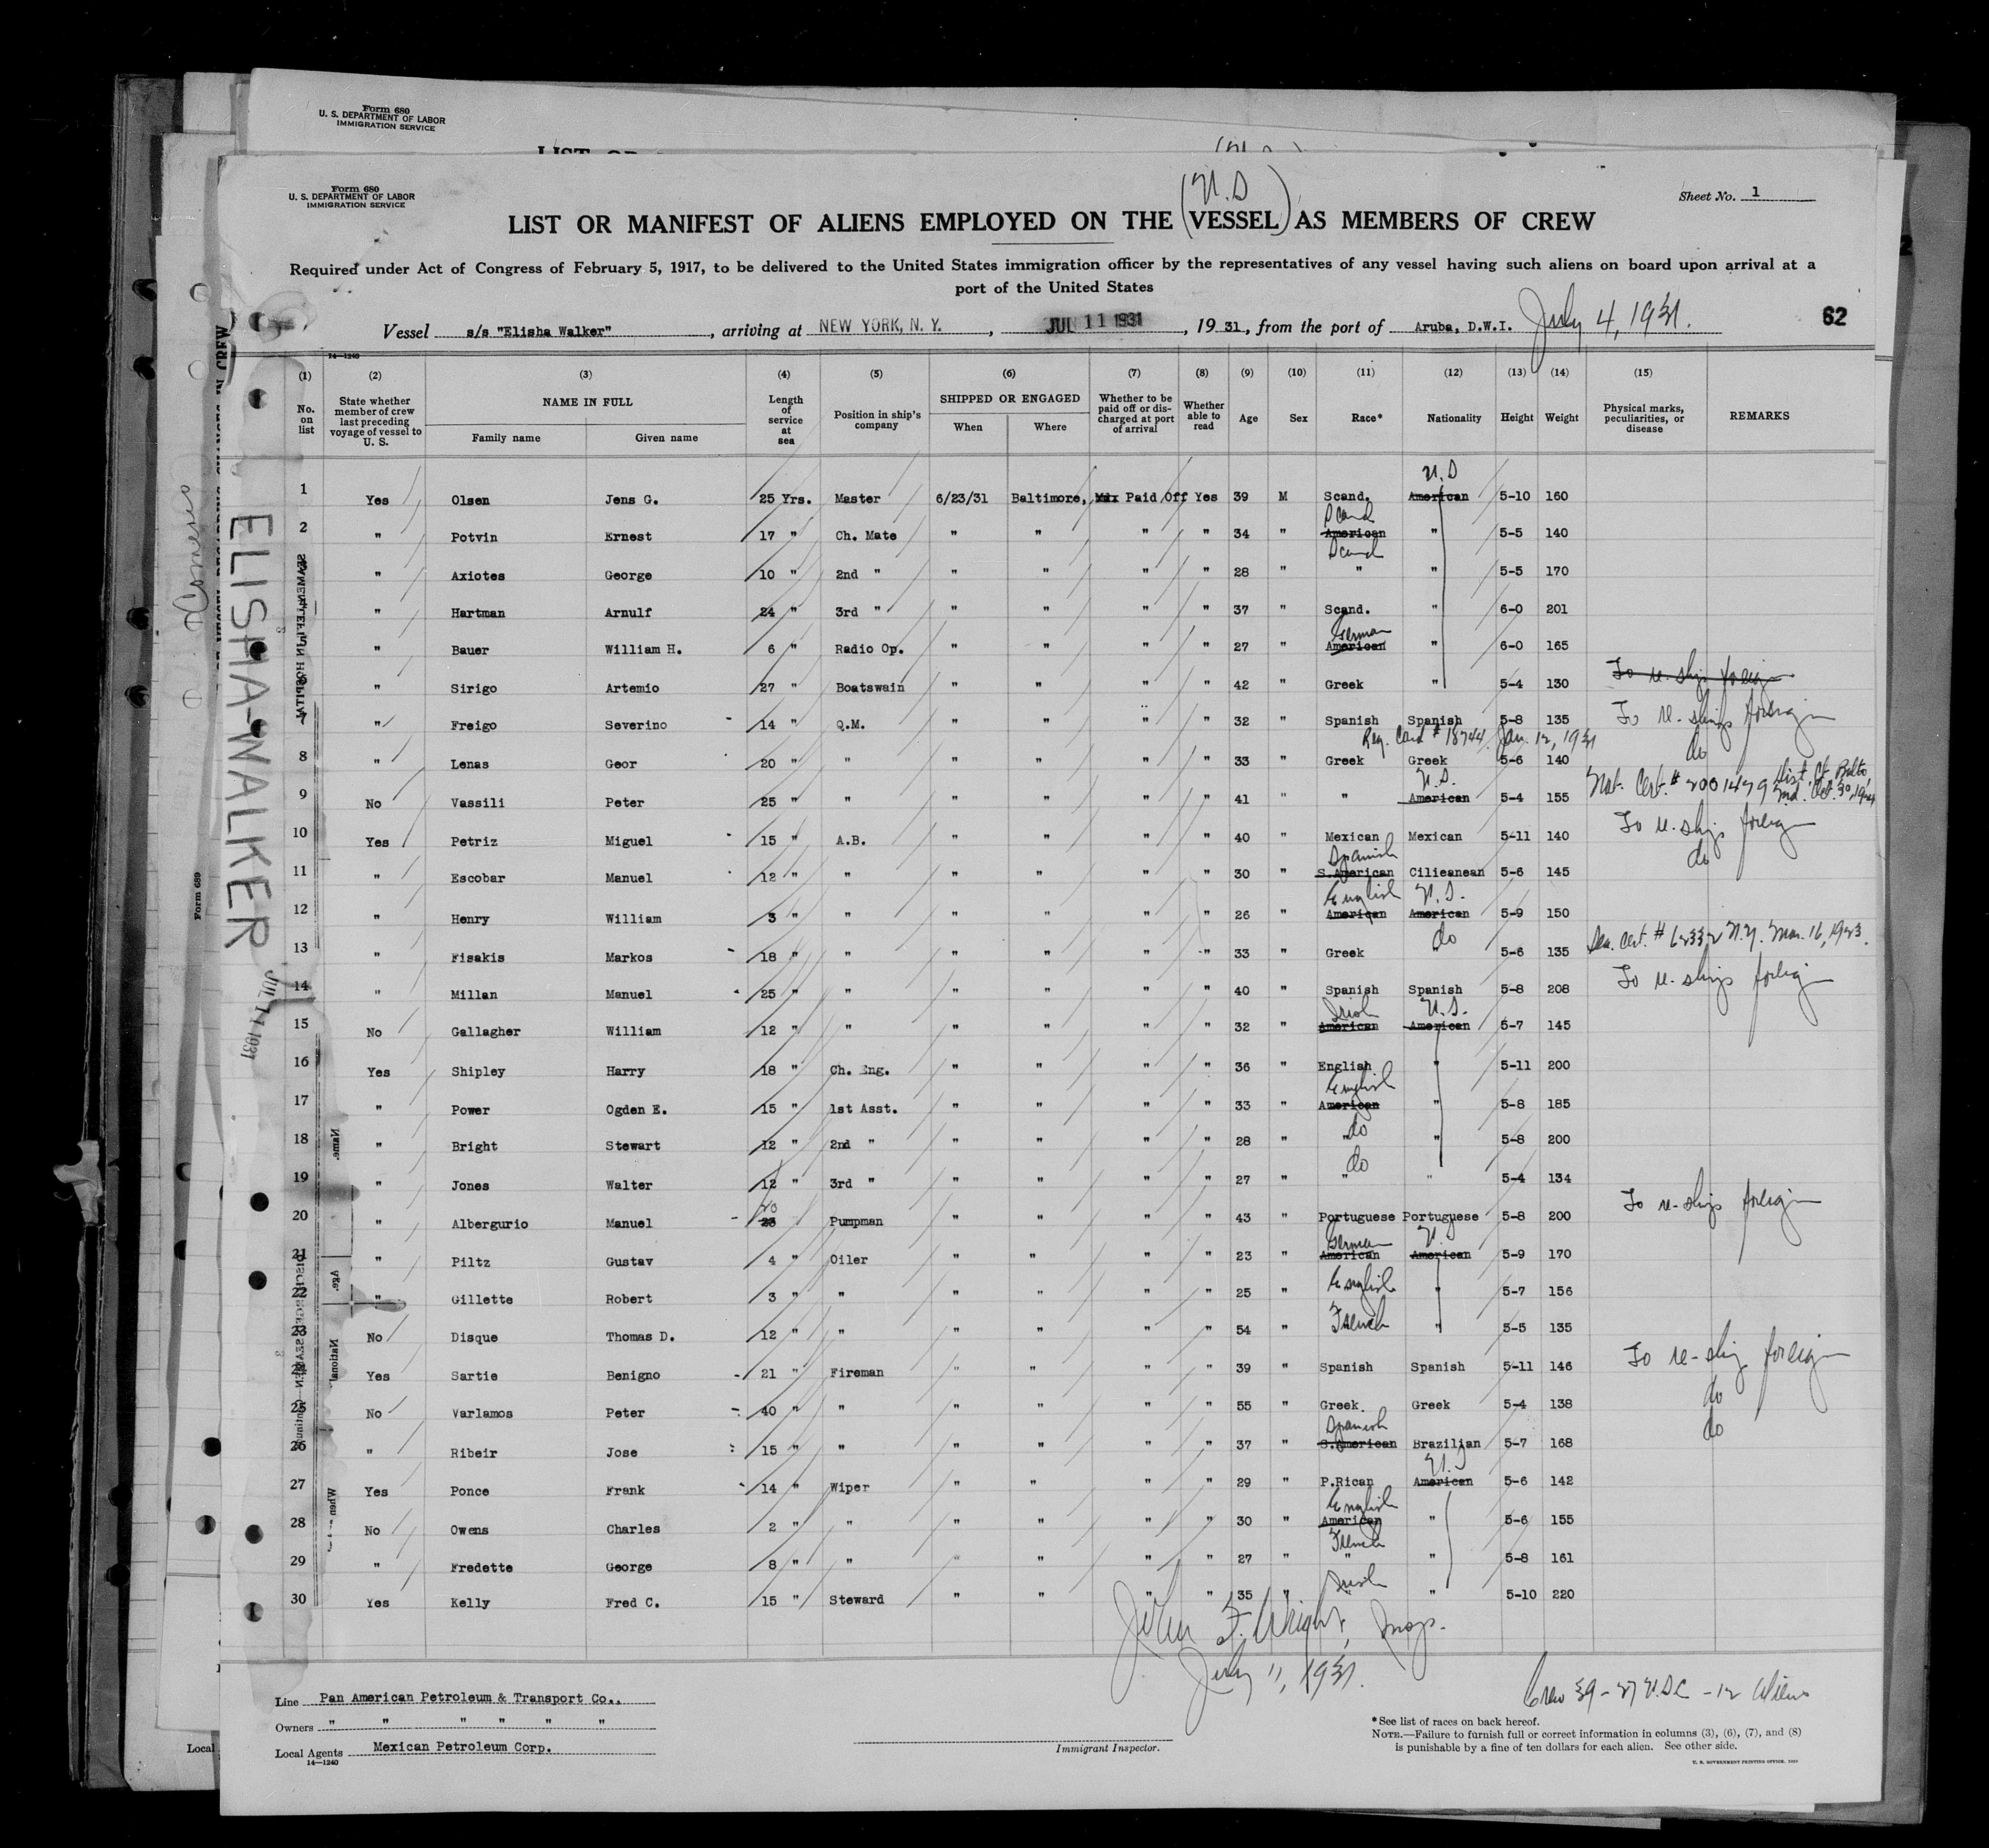 Form 680
U. S. DEPARTMENT OF LABOR
IMMIGRATION SERVICE
Form 680
U. S. DEPARTMENT OF LABOR
IMMIGRATION SERVICE
Sheet No. 1
(U.S)
LIST OR MANIFEST OF ALIENS EMPLOYED ON THE (VESSEL) AS MEMBERS OF CREW
Required under Act of Congress of February 5, 1917, to be delivered to the United States immigration officer by the representatives of any vessel having such aliens on board upon arrival at a
port of the United States
Vessel s/s "Elisha Walker", arriving at NEW YORK, N. Y., JUL 11 1931, 1931, from the port of Aruba, D.W.I. July 4, 1931.
62
14—1240
(1) (2) (3) (4) (5) (6) (7) (8) (9) (10) (11) (12) (13) (14) (15)
No. on list
State whether member of crew last preceding voyage of vessel to U. S.
NAME IN FULL
Family name Given name
Length of service at sea
Position in ship's company
SHIPPED OR ENGAGED
When Where
Whether to be paid off or discharged at port of arrival
Whether able to read
Age Sex Race* Nationality Height Weight
Physical marks, peculiarities, or disease
REMARKS
1 Yes Olsen Jens G. 25 Yrs. Master 6/23/31 Baltimore, Paid Off Yes 39 M Scand. American U.S 5-10 160
2 " Potvin Ernest 17 " Ch. Mate " " " " 34 " American Scand " 5-5 140
3 " Axiotes George 10 " 2nd " " " " " 28 " " Scand " 5-5 170
4 " Hartman Arnulf 24 " 3rd " " " " " 37 " Scand. " 6-0 201
5 " Bauer William H. 6 " Radio Op. " " " " 27 " American German " 6-0 165
6 " Sirigo Artemio 27 " Boatswain " " " " 42 " Greek " 5-4 130 To re-ship foreign
7 " Freigo Severino 14 " Q.M. " " " " 32 " Spanish Spanish 5-8 135 To re-ship foreign
Reg. Card # 18744 Jan. 12, 1931
8 " Lenas Geor 20 " " " " " " 33 " Greek Greek 5-6 140 do
9 No Vassili Peter 25 " " " " " " 41 " " American U.S. 5-4 155 Nat. Cert. # 2001479 Dist. Ct. Balto, Md. Oct. 30, 1924
10 Yes Petriz Miguel 15 " A.B. " " " " 40 " Mexican Mexican 5-11 140 To re-ship foreign
11 " Escobar Manuel 12 " " " " " " 30 " S.American Spanish Cilieanean 5-6 145 do
12 " Henry William 3 " " " " " " 26 " American English American U.S. 5-9 150
13 " Fisakis Markos 18 " " " " " " 33 " Greek " do 5-6 135 Sea. Cert. # 62332 N.Y. Mar. 16, 1923.
14 " Millan Manuel 25 " " " " " " 40 " Spanish Spanish 5-8 208 To re-ship foreign
15 No Gallagher William 12 " " " " " " 32 " American Irish American U.S. 5-7 145
16 Yes Shipley Harry 18 " Ch. Eng. " " " " 36 " English " 5-11 200
17 " Power Ogden E. 15 " 1st Asst. " " " " 33 " American English " 5-8 185
18 " Bright Stewart 12 " 2nd " " " " " 28 " " do " 5-8 200
19 " Jones Walter 12 " 3rd " " " " " 27 " " do " 5-4 134
20 " Albergurio Manuel 23 20 Pumpman " " " " 43 " Portuguese Portuguese 5-8 200 To re-ship foreign
21 " Piltz Gustav 4 " Oiler " " " " 23 " American German American U.S 5-9 170
22 " Gillette Robert 3 " " " " " " 25 " English " 5-7 156
23 No Disque Thomas D. 12 " " " " " " 54 " French " 5-5 135
24 Yes Sartie Benigno 21 " Fireman " " " " 39 " Spanish Spanish 5-11 146 To re-ship foreign
25 No Varlamos Peter 40 " " " " " " 55 " Greek. Greek 5-4 138 do
26 " Ribeir Jose 15 " " " " " " 37 " S.American Spanish Brazilian 5-7 168 do
27 Yes Ponce Frank 14 " Wiper " " " " 29 " P.Rican American U.S 5-6 142
28 No Owens Charles 2 " " " " " " 30 " American English " 5-6 155
29 " Fredette George 8 " " " " " " 27 " " French " 5-8 161
30 Yes Kelly Fred C. 15 " Steward " " " " 35 " " Irish " 5-10 220
John F. Wright, Insp.
July 11, 1931.
Crew 39 - 27 U.S.C - 12 Aliens
Line Pan American Petroleum & Transport Co.,
Owners " " " " " "
Local Agents Mexican Petroleum Corp.
14—1240
Immigrant Inspector.
*See list of races on back hereof.
NOTE.—Failure to furnish full or correct information in columns (3), (6), (7), and (8)
is punishable by a fine of ten dollars for each alien. See other side.
U. S. GOVERNMENT PRINTING OFFICE
ELISHA-WALKER
JUL 11 1931
Form 689
Local
Name.
Age.
National
When